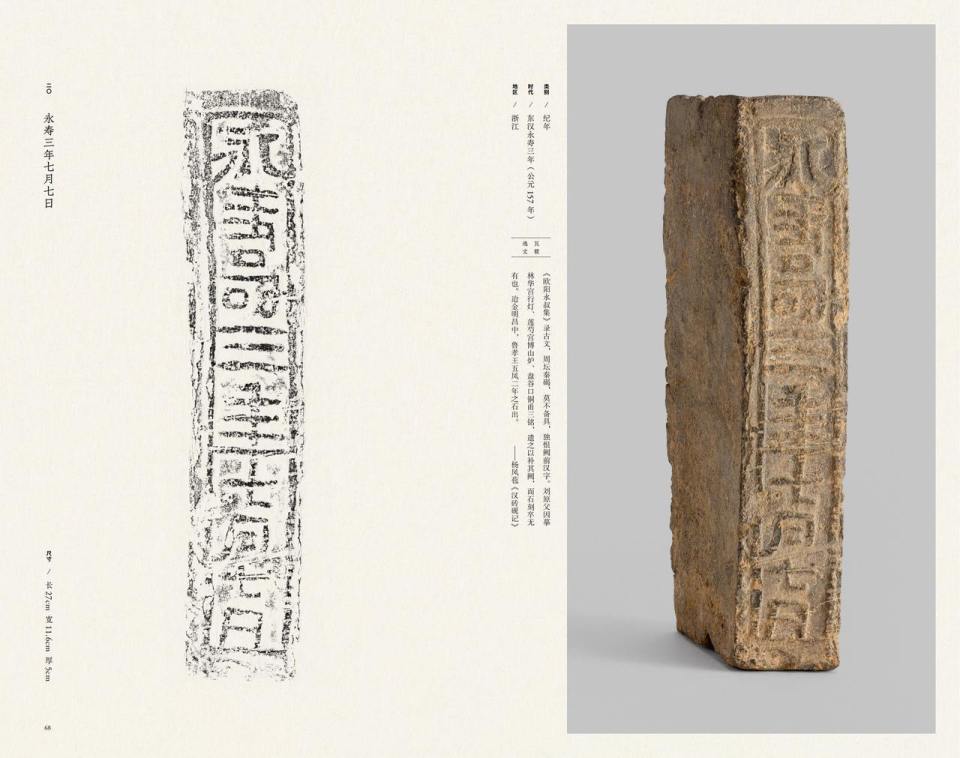 类别 / 纪年
时代 / 东汉永寿三年（公元157年）
地区 / 浙江
瓦甓
逸文
《欧阳永叔集》录古文，周坛秦碣，莫不备具，独恨阙前汉字。刘原父因摹
林华宫行灯、莲芍宫博山炉、盘谷口铜甬三铭，遗之以补其阙，而石刻卒无
有也。迨金明昌中，鲁孝王五凤二年之石出。 ——杨凤苞《汉砖砚记》
永寿三年七月七日
二〇 永寿三年七月七日
尺寸 / 长27cm 宽11.6cm 厚5cm
68
永寿三年七月七日